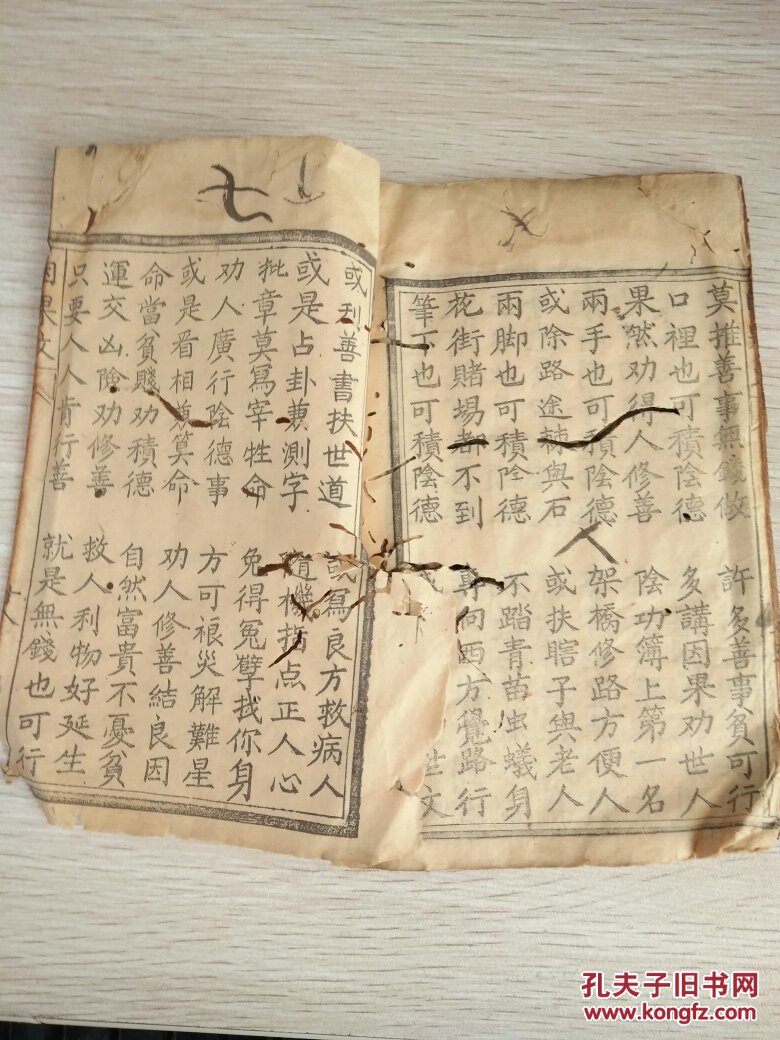 莫推善事無錢做 許多善事貧可行
口裡也可積陰德 多講因果劝世人
果然劝得人修善 陰功簿上第一名
兩手也可積陰德 架橋修路方便人
或除路途棘與石 或扶瞎子與老人
兩脚也可積陰德 不踏青苗虫蟻身
花街賭場都不到 專向西方覺路行
筆下也可積陰德
或利善書扶世道 或寫良方救病人
或是占卦兼測字 隨機指点正人心
批章莫寫宰牲命 免得冤孽找你身
劝人廣行陰德事 方可裉災解難星
或是看相兼算命 劝人修善結良因
命當貧賤劝積德 自然富貴不憂貧
運交凶險劝修善 救人利物好延生
只要人人肯行善 就是無錢也可行
因果文
七
人
孔夫子旧书网
www.kongfz.com